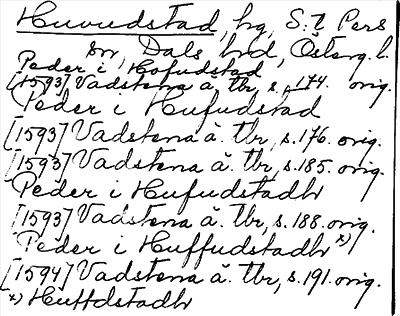 Huvudstad, hg, S:t Pers
sn, Dals hd, Österg. l.
Peder i Hofudstad
[1593] Vadstena ä. tbr, s. 174. orig.
Peder i Hufudstad
[1593] Vadstena ä. tbr, s. 176. orig.
[1593] Vadstena ä. tbr, s. 185. orig.
Peder i Hufudstadhr
[1593] Vadstena ä. tbr, s. 188. orig.
Peder i Huffudstadhr x)
[1594] Vadstena ä. tbr, s. 191. orig.
x) Huffdstadhr